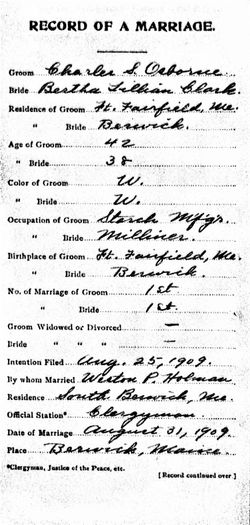 RECORD OF A MARRIAGE.
Groom Charles S. Osborne
Bride Bertha Lillian Clark.
Residence of Groom Ft. Fairfield, Me.
" Bride Berwick.
Age of Groom 42
" Bride 38
Color of Groom W.
" Bride W.
Occupation of Groom Starch Mfgr.
" Bride Milliner.
Birthplace of Groom Ft. Fairfield, Me.
" Bride Berwick.
No. of Marriage of Groom 1st
" Bride 1st.
Groom Widowed or Divorced —
Bride " " " —
Intention Filed Aug. 25, 1909.
By whom Married Weston P. Holman
Residence South Berwick, Me.
Official Station* Clergyman
Date of Marriage August 31, 1909.
Place Berwick, Maine.
*Clergyman, Justice of the Peace, etc.
[Record continued over.]